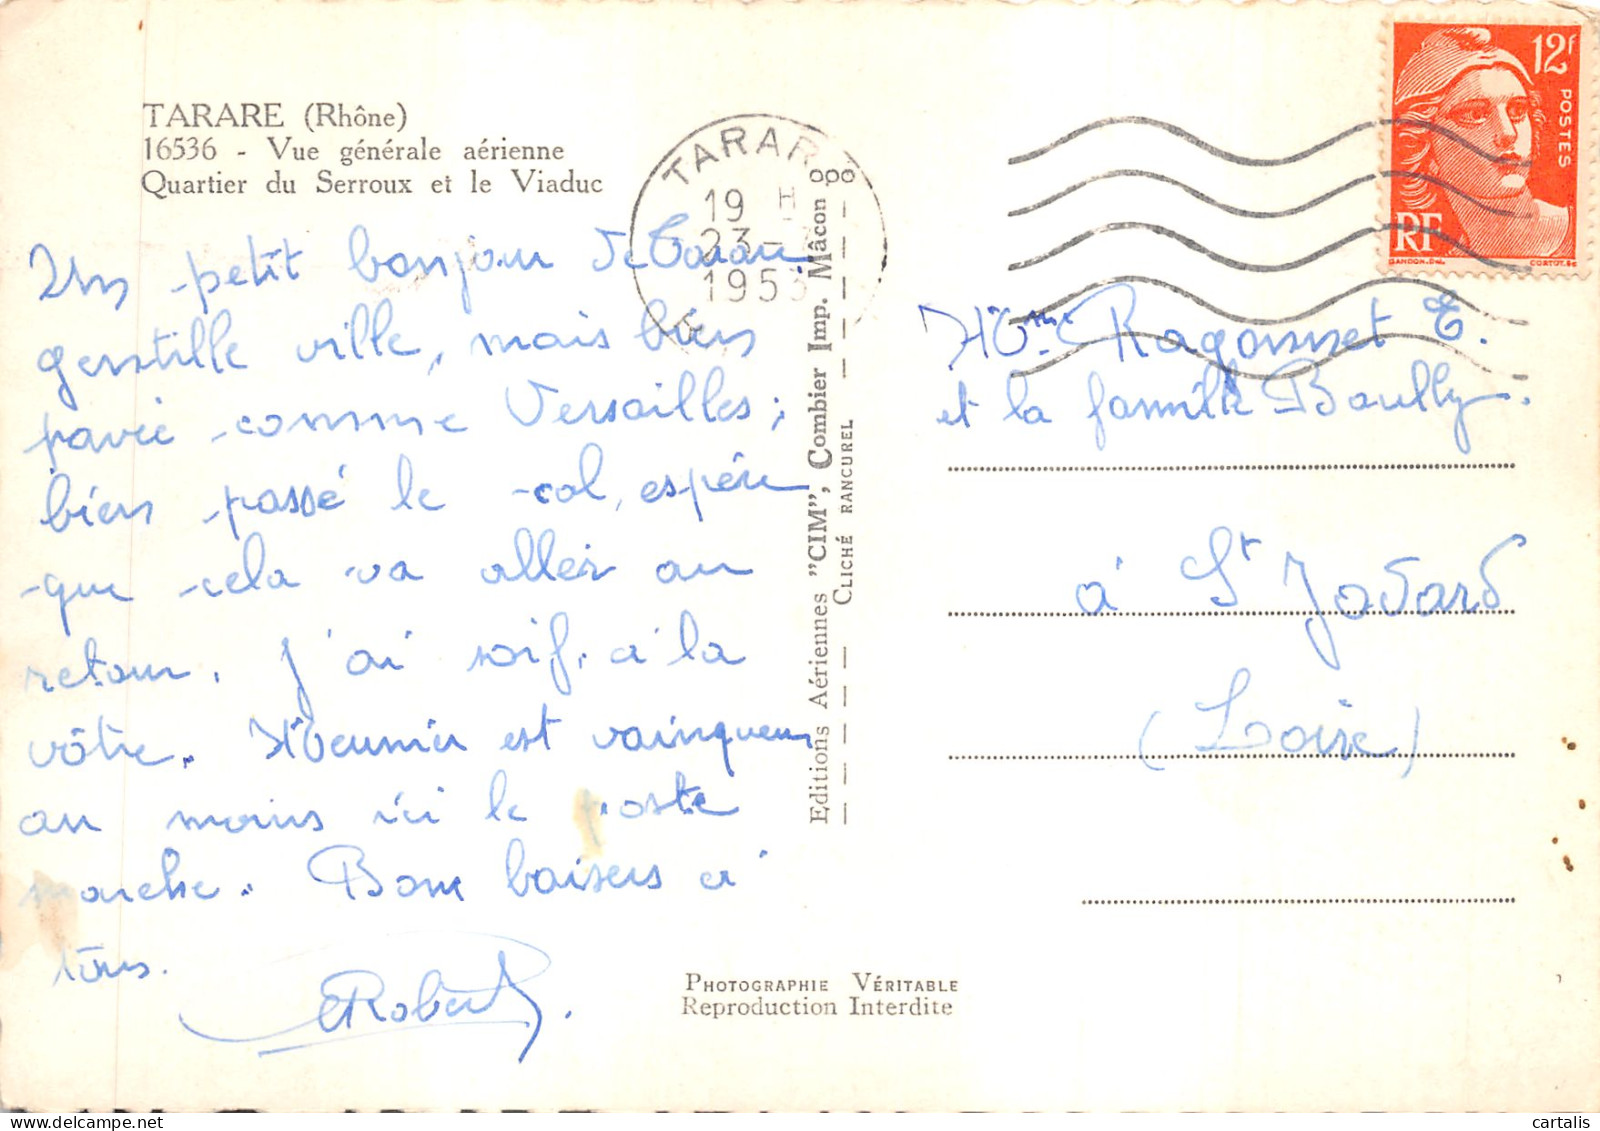 TARARE (Rhône)
16536 - Vue générale aérienne
Quartier du Serroux et le Viaduc
Un petit bonjour de Tarare
gentille ville, mais bien
pavée comme Versailles ;
bien passé le col, espère
que cela va aller au
retour. J'ai soif, à la
vôtre. Meunier est vainqueur
au moins ici le poste
marche. Bons baisers à
tous.
Robert.
TARARE
19 H
23 -
1953
Editions Aériennes "CIM", Combier Imp. Mâcon
CLICHÉ RANCUREL
12f
POSTES
RF
GANDON.Del.
CORTOT.Sc
Mme Ragonnet E.
et la famille Boully.
à St Jodard
(Loire)
PHOTOGRAPHIE VÉRITABLE
Reproduction Interdite
cartalis